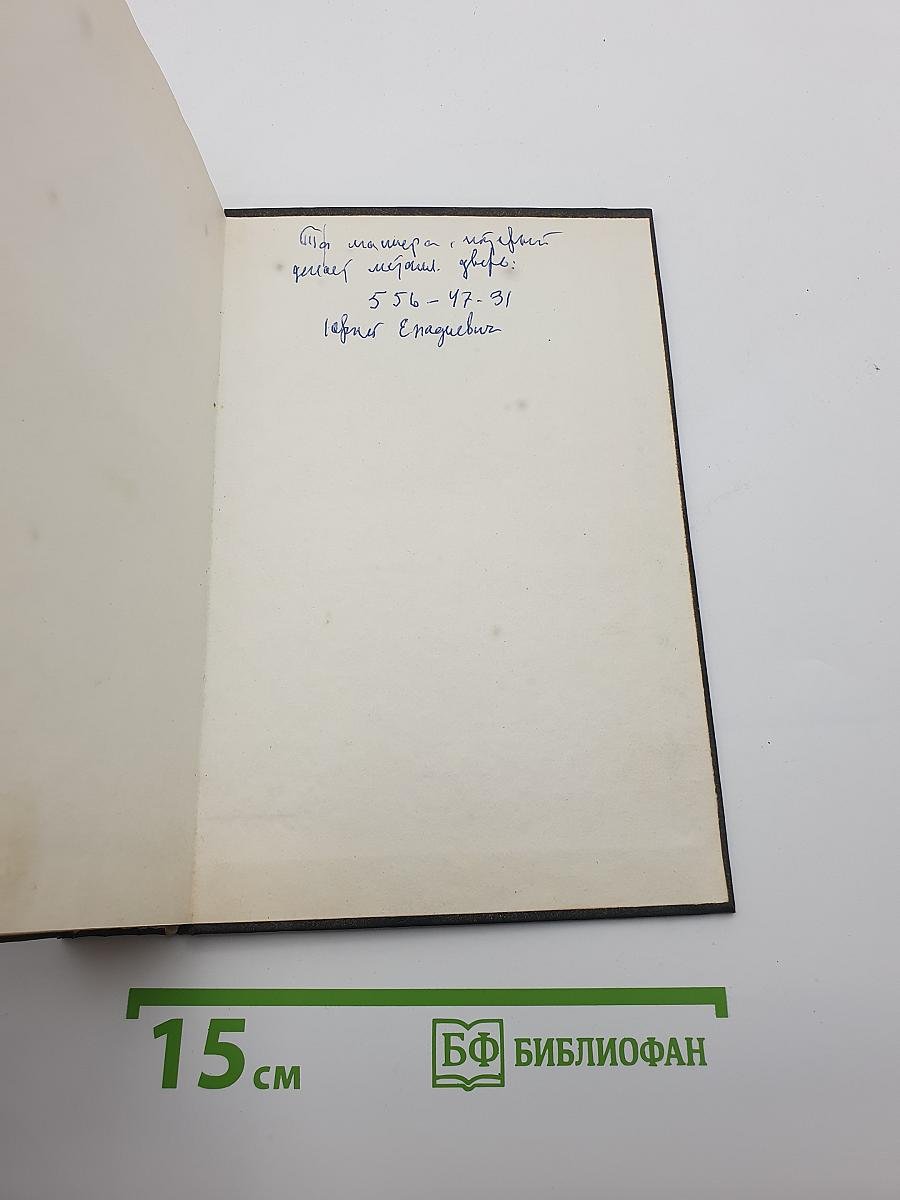 Тф мастера, который
делает металл. дверь:
556-47-31
Юрий Епадиевич
15 см
БФ БИБЛИОФАН